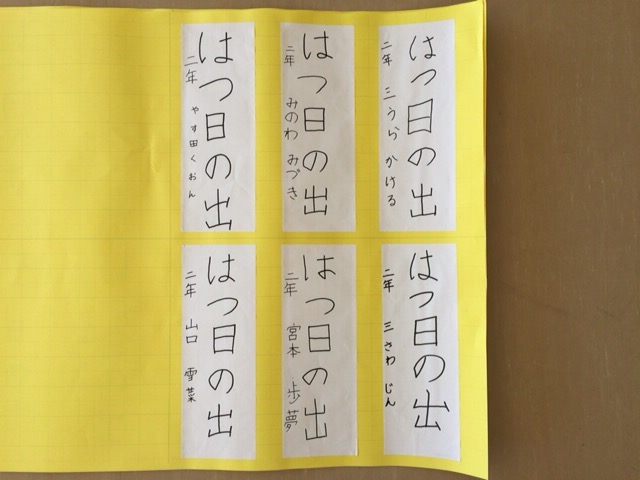 はつ日の出
二年 三うら かける
はつ日の出
二年 みのわ みづき
はつ日の出
二年 やす田くおん
はつ日の出
二年 三さわ じん
はつ日の出
二年 宮本 歩夢
はつ日の出
二年 山口 雪菜